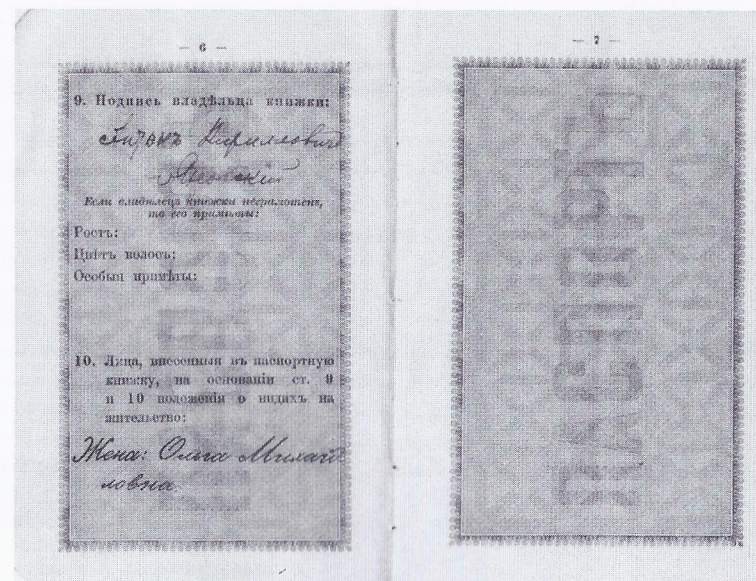 — 6 —
9. Подпись владѣльца книжки:
Антонъ Кирилловичъ
Если владѣлецъ книжки неграмотенъ,
то его примѣты:
Ростъ:
Цвѣтъ волосъ:
Особыя примѣты:
10. Лица, внесенныя въ паспортную
книжку, на основаніи ст. 9
и 10 положенія о видахъ на
жительство:
Жена: Ольга Михай
ловна.
— 7 —